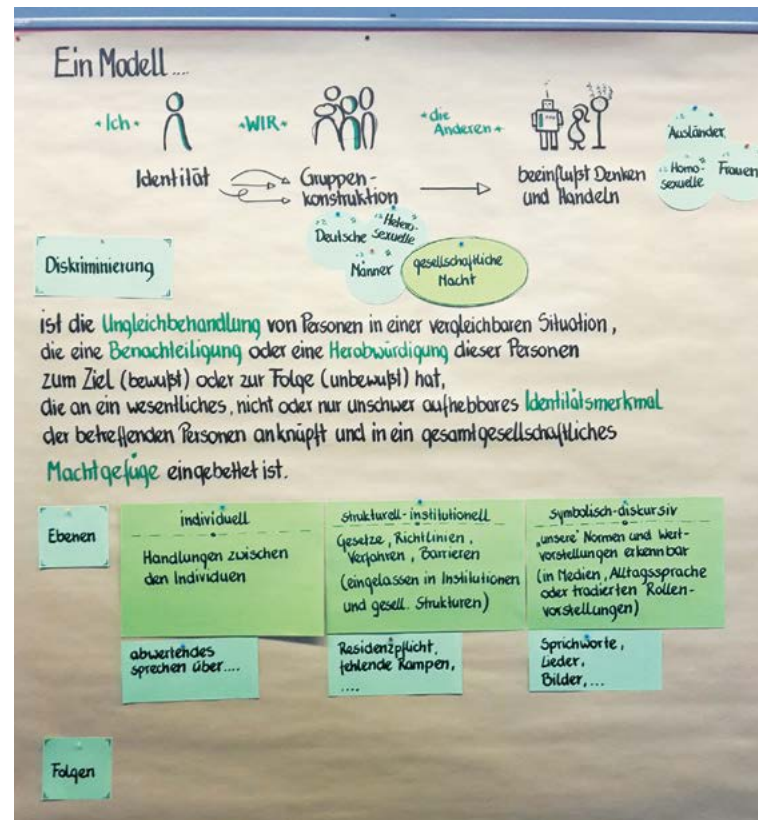 Ein Modell....
•Ich• •WIR• •die Anderen•
Identität Gruppen-
konstruktion
beeinflußt Denken
und Handeln
Ausländer
Homo-
sexuelle
Frauen
Deutsche
Hetero-
sexuelle
Männer
gesellschaftliche
Macht
Diskriminierung
ist die Ungleichbehandlung von Personen in einer vergleichbaren Situation,
die eine Benachteiligung oder eine Herabwürdigung dieser Personen
zum Ziel (bewußt) oder zur Folge (unbewußt) hat,
die an ein wesentliches, nicht oder nur unschwer aufhebbares Identitätsmerkmal
der betreffenden Personen anknüpft und in ein gesamtgesellschaftliches
Machtgefüge eingebettet ist.
Ebenen
individuell
Handlungen zwischen
den Individuen
strukturell-institutionell
Gesetze, Richtlinien,
Verfahren, Barrieren
(eingelassen in Institutionen
und gesell. Strukturen)
symbolisch-diskursiv
„unsere" Normen und Wert-
vorstellungen erkennbar
(in Medien, Alltagssprache
oder tradierten Rollen-
vorstellungen)
abwertendes
sprechen über....
Residenzpflicht,
fehlende Rampen,
....
Sprichworte,
Lieder,
Bilder,...
Folgen